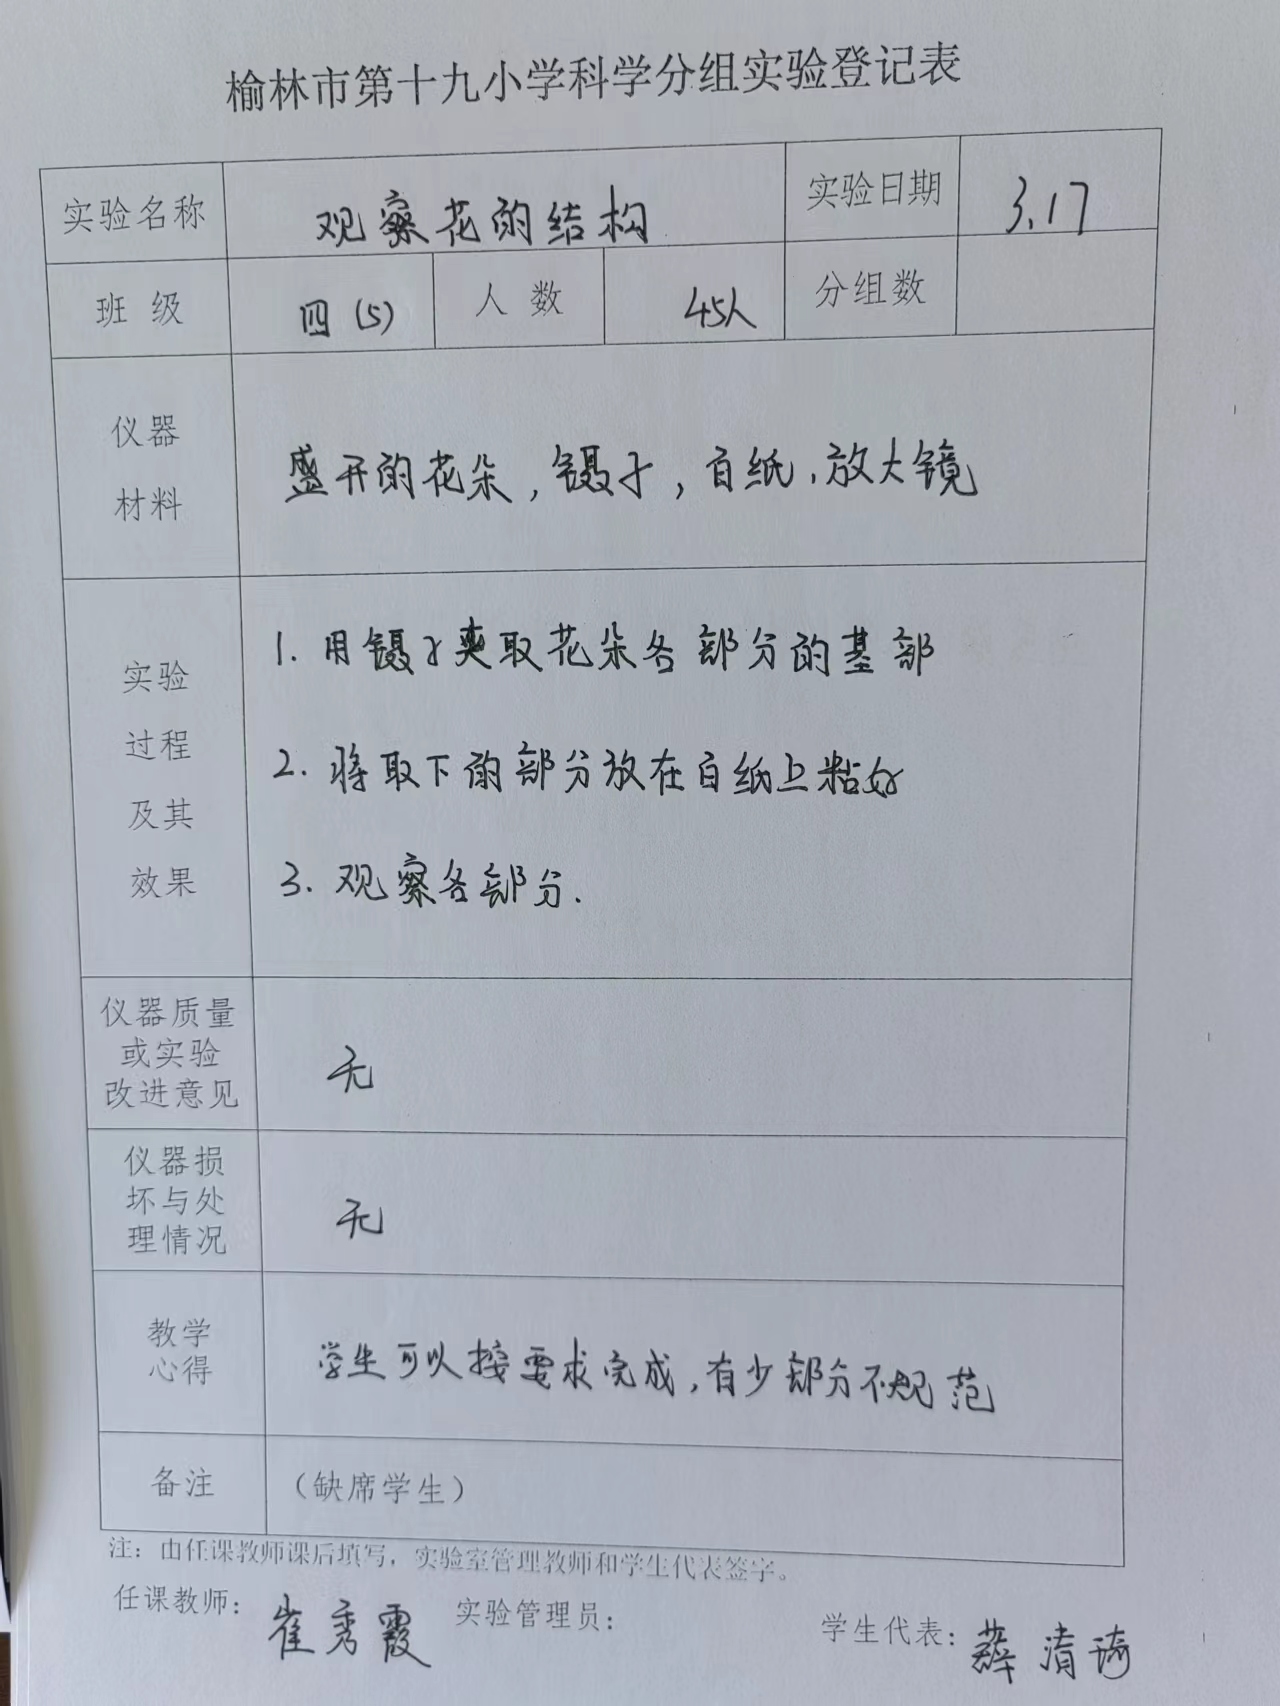 榆林市第十九小学科学分组实验登记表
实验名称 观察花的结构 实验日期 3.17
班 级 四(5) 人 数 45人 分组数
仪器
材料
盛开的花朵,镊子,白纸,放大镜
实验
过程
及其
效果
1. 用镊子夹取花朵各部分的基部
2. 将取下的部分放在白纸上粘好
3. 观察各部分.
仪器质量
或实验
改进意见
无
仪器损
坏与处
理情况
无
教学
心得
学生可以按要求完成,有少部分不规范
备注 (缺席学生)
注:由任课教师课后填写,实验室管理教师和学生代表签字。
任课教师: 崔秀霞 实验管理员: 学生代表: 薛清琦